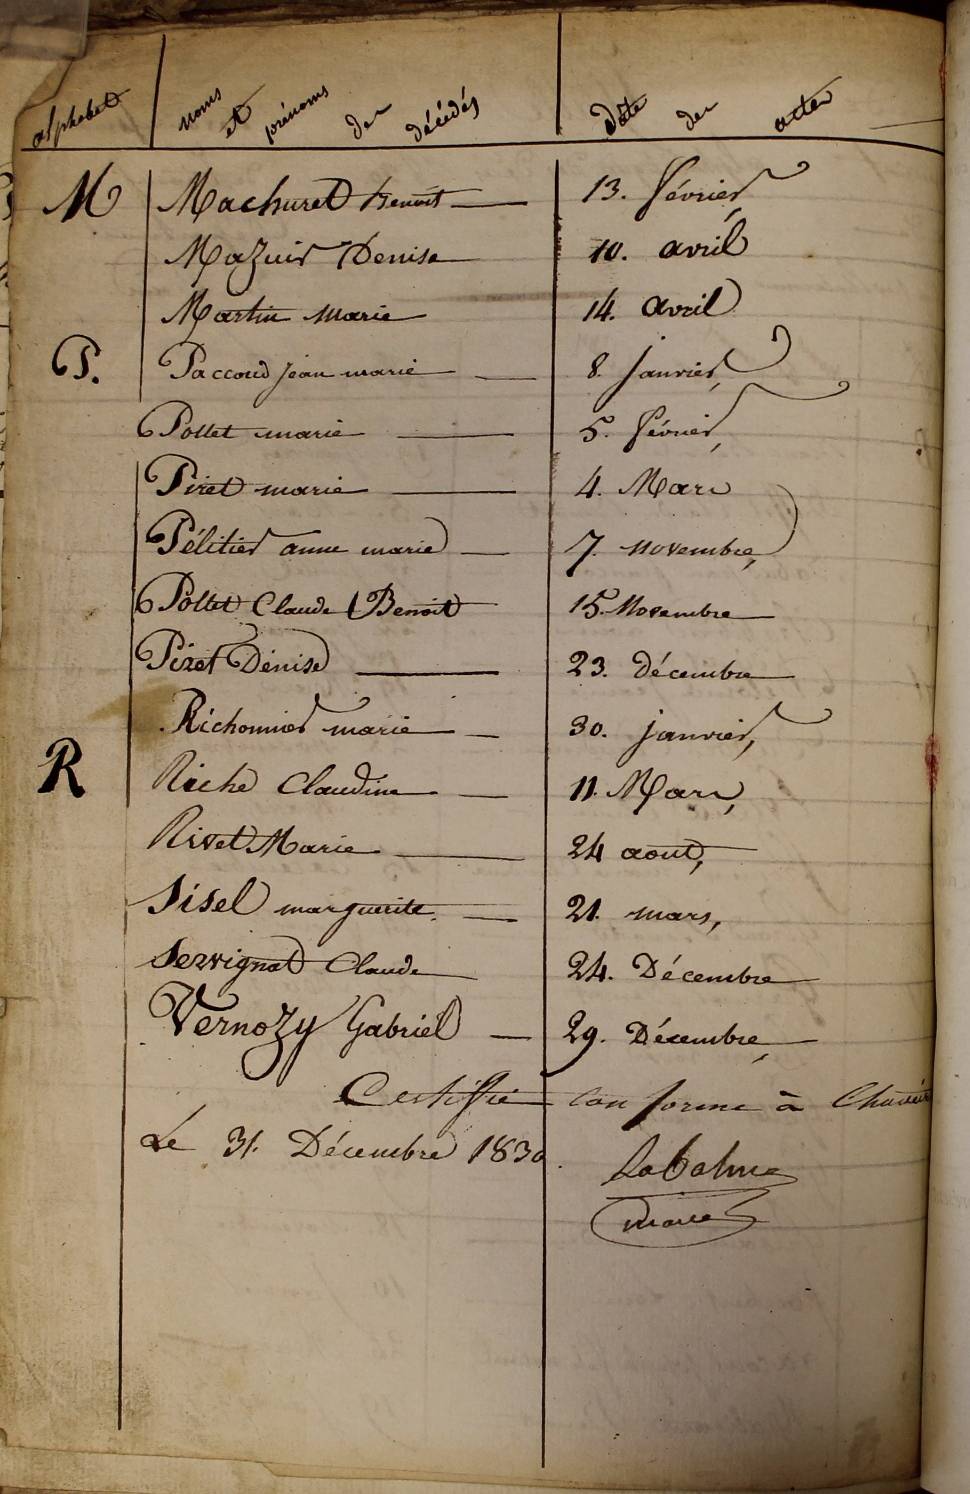 alphabet noms et prénoms des décédés Date des actes
M Machuret Benoit 13. février
Mazuir Denise 10. avril
Martin marie 14. avril
P. Paccoud jean marie 8. janvier,
Pollet marie 5. février,
Piret marie 4. Mars
Pélitier anne marie 7. novembre,
Pollet Claude Benoit 15. Novembre
Piret Dénise 23. décembre
Richonnier marie 30. janvier,
R Riche Claudine 11. Mars,
Rivet Marie 24 aout,
Sisel marguerite. 21. mars,
Servignat Claude 24. Décembre
Vernozy Gabriel 29. Décembre,
Certiffié conforme à
Le 31. Décembre 1830.
Labalme
maire